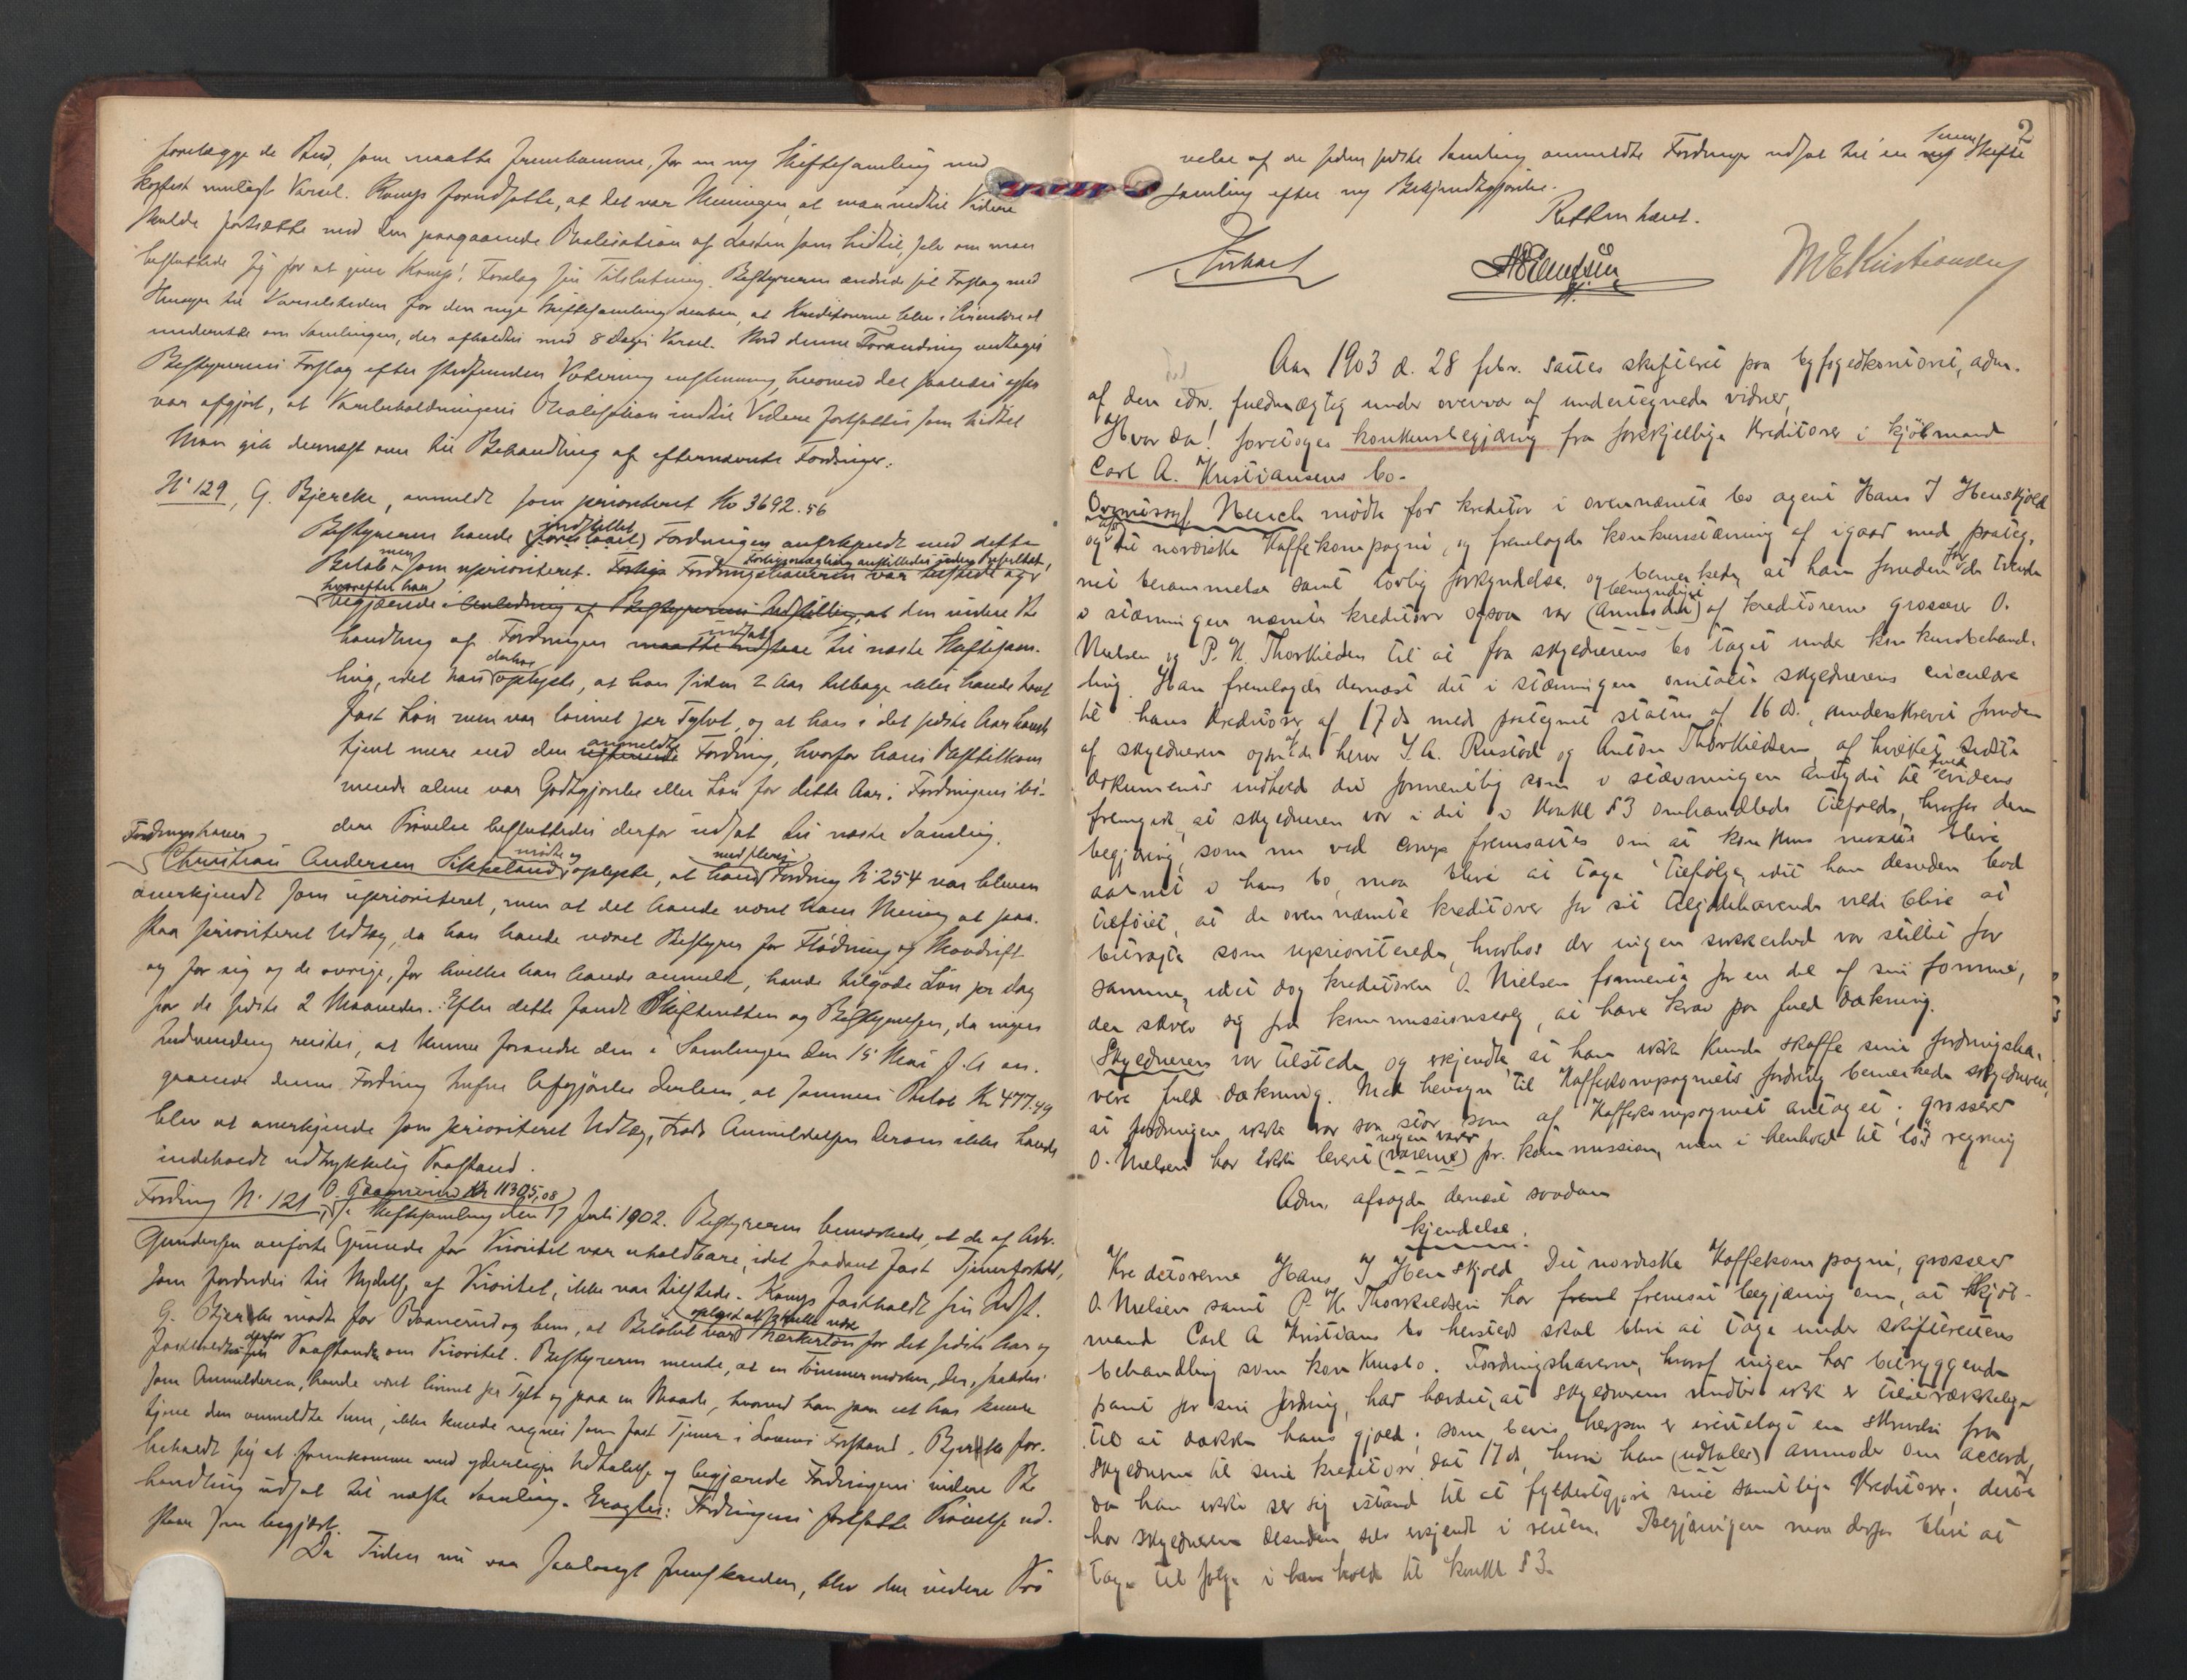 forelægge de Bud, som maatte fremkomme, for en ny Skiftesamling med
kortest muligt Varsel. Komp. forudsatte, at det var Meningen, at man indtil Videre
skulde fortsætte med den paagaaende Realisation af Lasten som hidtil, selv om man
besluttede sig for at give Komp! Forslag sin Tilslutning. Bestyreren ændrede sit Forslag med
Hensyn til Varselstiden for den nye Skiftesamling derhen, at Kreditorerne blev i Cirkulære at
underrette om Samlingen, der afholdtes med 8 Dages Varsel. Med denne Forandring vedtoges
Bestyrerens Forslag efter stedfunden Votering enstemmig, hvormed det saaledes ogsaa
var afgjort, at Varebeholdningens Realisation indtil Videre fortsattes som hidtil
Man gik dernæst over til Behandling af efternævnte Fordringer:
N° 129, G. Bjercke, anmeldt som prioriteret Kr 3692.56
Bestyreren havde indstillet (foreslaaet) Fordringen anerkjendt med dette
Beløb men som uprioriteret. Fordringshaveren var tilstede og
hvorefter han begjærede i Anledning af Bestyrerens Indstilling, at den videre Be
handling af Fordringen udsat til næste Skiftesam-
ling, idet han derhos oplyste, at han siden 2 Aar tilbage ikke havde havt
fast Løn men var lønnet per Tylvt, og at han i det sidste Aar havde
tjent mere end den anmeldte Fordring, hvorfor hans Resttilkom
mende alene var Godtgjørelse eller Løn for dette Aar. Fordringens vi-
dere Prøvelse besluttedes derfor udsat til næste Samling.
Fordringshaver
Christian Andersen Sikkeland mødte og oplyste, at hans Fordring N° 254 var bleven
anerkjendt som uprioriteret, men at det havde været hans Mening at paa-
staa prioriteret Udlæg, da han havde været Bestyrer for Flødning og Skovdrift
og for sig og de øvrige, for hvilke han havde anmeldt, havde tilgode Løn per Dag
for de sidste 2 Maaneder. Efter dette fandt Skifteretten og Bestyrelsen, da ingen
Indvending reistes, at kunne forandre den i Samlingen den 15 Mai f. A. an-
gaaende denne Fordring trufne Afgjørelse derhen, at sammes Beløb Kr 477.49
blev at anerkjende som prioriteret Udlæg, trods Anmeldelsen derom ikke havde
indeholdt udtrykkelig Paastand.
Fordring N° 121, O. Baanerud Kr 11305,08
i Skiftesamling den 17 Juli 1902. Bestyreren bemærkede, at de af Adv.
Gundersen anførte Grunde for Prioritet var uholdbare, idet saadant fast Tjenerforhold,
som fordredes til Nydelse af Prioritet, ikke var tilstede. Komp. fastholdt sin Indst.
G. Bjercke mødte for Baanerud og bem., at Beløbet var for det sidste Aar og
fastholdtes derfor Paastanden om Prioritet. Bestyreren mente, at en Tømmermærker, der, saaledes
som Anmelderen, havde været lønnet per Tylft og paa en Maade, hvorved han paa et Aar kunde
tjene den anmeldte Sum, ikke kunde regnes som fast Tjener i Lovens Forstand. Bjercke for-
beholdt sig at fremkomme med yderligere Udtalelse og begjærede Fordringens videre Be
handling udsat til næste Samling. Eragtes: Fordringens fortsatte Prøvelse ud-
staar som begjært.
Da Tiden nu var saalangt fremskreden, blev den videre Prø
2
velse af de siden sidste Samling anmeldte Fordringer udsat til en senere Skifte
samling efter ny Bekjendtgjørelse.
Retten hævet.
M E Kristiansen
Aar 1903 d. 28 febr. sattes skifteret paa byfogedkontoret, adm.
af den edsv. fuldmægtig under overvær af undertegnede vidner,
Hvor da! foretoges konkursbegjæring fra forskjellige kreditorer i kjøbmand
Carl A. Kristiansens bo.
Overretssagf Heuch mødte for kreditor i ovennævnte bo agent Hans I Henskjold
og A/S Det nordiske Kaffekompagni, og fremlagde konkursstævning af igaar med paateg-
net berammelse samt lovlig forkyndelse og bemerkede, at han foruden for de tvende
i stævningen nævnte kreditorer ogsaa var bemyndiget (anmodet) af kreditorerne grosserer O.
Nielsen og P. K. Thorkildsen til at faa skyldnerens bo taget under konkursbehand-
ling. Han fremlagde dernæst det i stævningen omtalte skyldnerens circulære
til hans kreditorer af 17 ds med paategnet status af 16 ds., underskrevet foruden
af skyldneren ogsaa af de herrer I. A. Rustad og Anton Thorkildsen, af hvilket sidste
dokuments indhold det formentlig som i stævningen antydet til fuld evidens
fremgik, at skyldneren var i det i konkl § 3 omhandlede tilfælde, hvorfor den
begjæring, som nu ved comp. fremsattes om at konkurs maatte blive
aabnet i hans bo, maa blive at tage tilfølge, idet han desuden bad
tilføiet, at de ovennævnte kreditorer for sit tilgodehavende vilde blive at
betragte som uprioriterede, hvorhos der ingen sikkerhed var stillet for
samme, idet dog kreditoren O. Nielsen formente for en del af sin fordring,
der skrev sig fra kommissionssalg, at have krav paa fuld dækning.
Skyldneren var tilstede og erkjendte, at han ikke kunde skaffe sine fordringsha-
vere fuld dækning. Med hensyn til Kaffekompagniets fordring bemerkede skyldneren,
at fordringen ikke var saa stor som af Kaffekompagniet antaget; grosserer
O. Nielsen har ikke leveret nogen varer (varerne) pr. kommission, men i henhold til lød regning
Adm. afsagde dernæst saadan
kjendelse:
Kreditorerne Hans I Henskjold Det nordiske Kaffekompagni, grosserer
O. Nielsen samt P. K. Thorkildsen har fremsat begjæring om, at kjøb-
mand Carl A Kristians bo hersteds skal blive at tage under skifterettens
behandling som konkursbo. Fordringshaverne, hvoraf ingen har betryggende
pant for sin fordring, har hævdet, at skyldnerens midler ikke er tilstrækkelige
til at dække hans gjæld; som bevis herpaa er irettelagt en skrivelse fra
skyldneren til sine kreditorer dat 17 ds, hvori han (udtaler) anmoder om accord,
da han ikke ser sig istand til at fyldestgjøre sine samtlige kreditorer; dette
har skyldneren desuden selv erkjendt i retten. Begjæringen maa derfor blive at
tage til følge i henhold til konkl § 3.